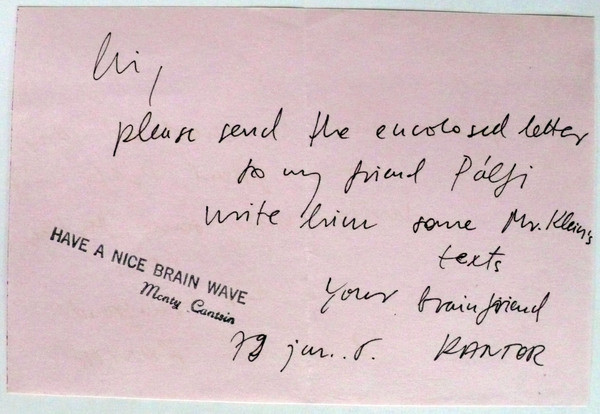 Hi,
please send the encolosed letter
to my friend Pálfi
write him some Mr. Klein's
texts
HAVE A NICE BRAIN WAVE
Monty Cantsin
Your brainfriend
79 jan. 5. KANTOR